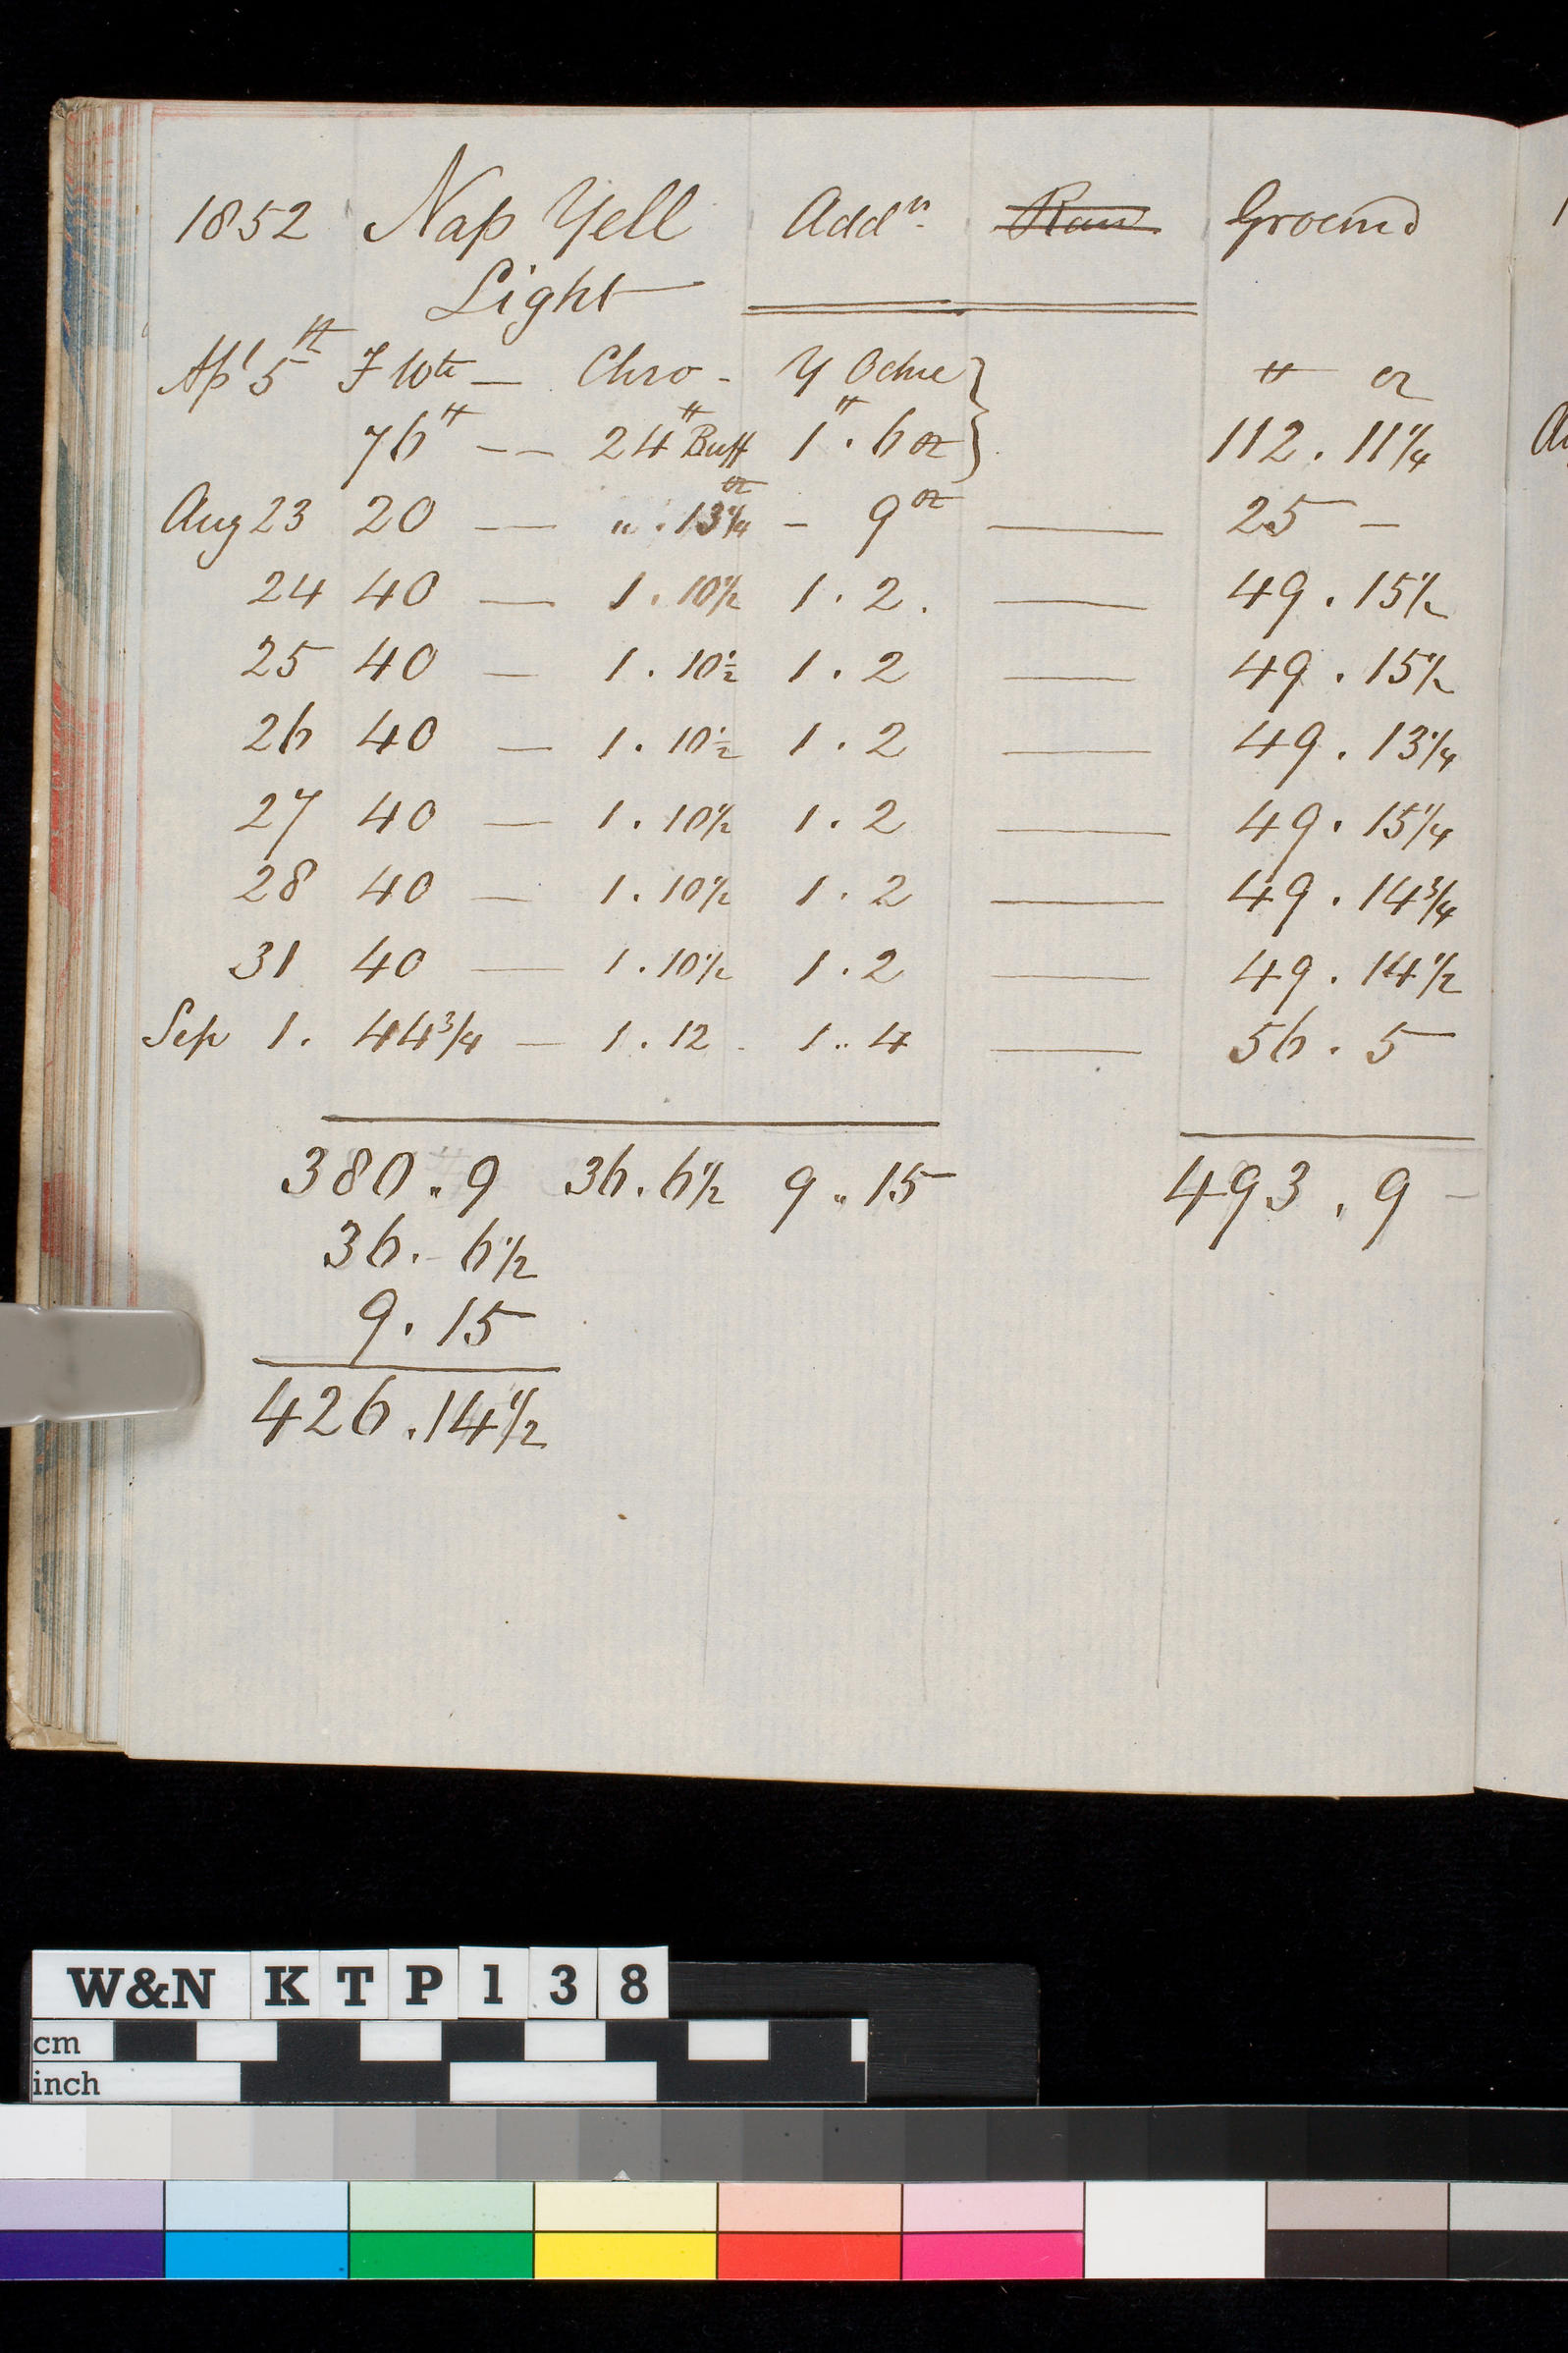 1852 Nap Yell Addn. Raw Ground
Light
Apl 5th F Wte — Chro - Y Ochre } ℔ oz
76℔ — — 24℔ Buff 1℔ . 6 oz } 112 . 11 1/4
Aug 23 20 — " . 13 1/4 oz - 9 oz — 25 —
24 40 — 1 . 10 1/2 1 . 2 . — 49 . 15 1/2
25 40 — 1 . 10 1/2 1 . 2 — 49 . 15 1/2
26 40 — 1 . 10 1/2 1 . 2 — 49 . 13 1/4
27 40 — 1 . 10 1/2 1 . 2 — 49 . 15 1/4
28 40 — 1 . 10 1/2 1 . 2 — 49 . 14 3/4
31 40 — 1 . 10 1/2 1 . 2 — 49 . 14 1/2
Sep 1 . 44 3/4 — 1 . 12 . 1 .. 4 — 56 . 5
380 .. 9 36 . 6 1/2 9 .. 15 493 . 9 —
36 . - 6 1/2
9 . 15
426 . 14 1/2
W&N K T P 1 3 8
cm
inch